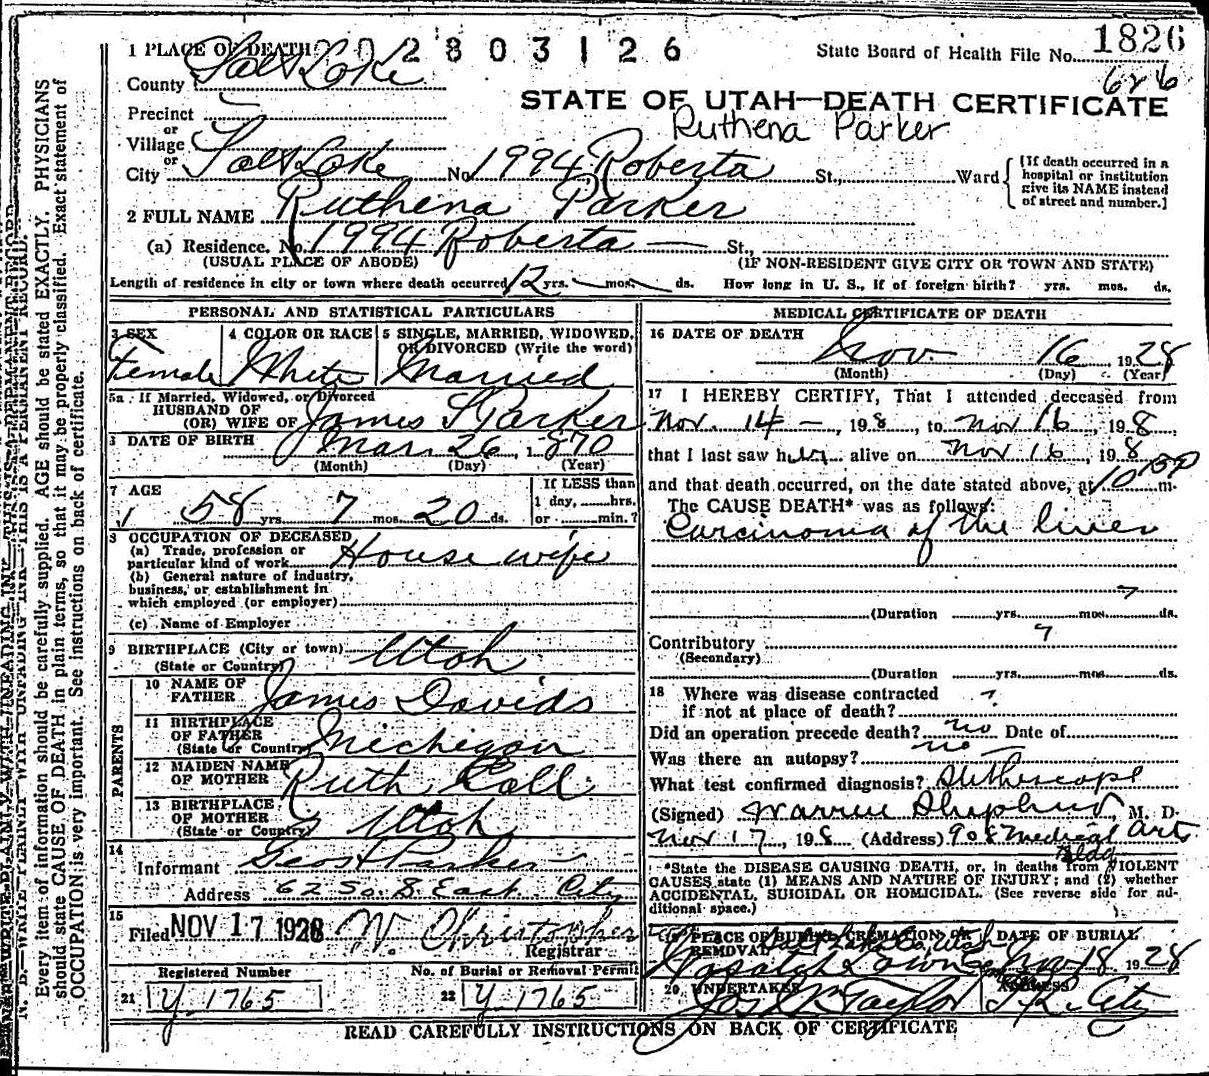 1 PLACE OF DEATH 2803126 State Board of Health File No. 1826
County Salt Lake 626
STATE OF UTAH—DEATH CERTIFICATE
Precinct
Ruthena Parker
or
Village
or
City Salt Lake No. 1994 Roberta St., Ward
[If death occurred in a
hospital or institution
give its NAME instead
of street and number.]
2 FULL NAME Ruthena Parker
(a) Residence. No. 1994 Roberta — St.,
(USUAL PLACE OF ABODE) (IF NON-RESIDENT GIVE CITY OR TOWN AND STATE)
Length of residence in city or town where death occurred 12 yrs. — mos. — ds. How long in U. S., if of foreign birth? yrs. mos. ds.
PERSONAL AND STATISTICAL PARTICULARS
3 SEX 4 COLOR OR RACE 5 SINGLE, MARRIED, WIDOWED,
OR DIVORCED (Write the word)
Female White Married
5a If Married, Widowed, or Divorced
HUSBAND OF
(OR) WIFE OF James S Parker
DATE OF BIRTH Mar. 26, 1870
(Month) (Day) (Year)
7 AGE If LESS than
1 day, hrs.
58 yrs. 7 mos. 20 ds. or min.?
8 OCCUPATION OF DECEASED
(a) Trade, profession or
particular kind of work Housewife
(b) General nature of industry,
business, or establishment in
which employed (or employer)
(c) Name of Employer
9 BIRTHPLACE (City or town)
(State or Country) Utah
PARENTS
10 NAME OF
FATHER James Davids
11 BIRTHPLACE
OF FATHER
(State or Country) Michigan
12 MAIDEN NAME
OF MOTHER Ruth Call
13 BIRTHPLACE
OF MOTHER
(State or Country) Utah
14
Informant Parker
Address 62 So. 8 East City
15
Filed NOV 17 1928 W. Christopher
Registrar
Registered Number No. of Burial or Removal Permit
21 Y 1765 22 Y 1765
MEDICAL CERTIFICATE OF DEATH
16 DATE OF DEATH
Nov 16, 1928
(Month) (Day) (Year)
17 I HEREBY CERTIFY, That I attended deceased from
Nov. 14 —, 198, to Nov 16, 198,
that I last saw her alive on Nov 16, 198
and that death occurred, on the date stated above, at 10 15 P m.
The CAUSE DEATH* was as follows:
Carcinoma of the liver
?
(Duration yrs. mos. ds.
Contributory ?
(Secondary)
(Duration yrs. mos. ds.
18 Where was disease contracted
if not at place of death? ?
Did an operation precede death? no Date of
Was there an autopsy? no —
What test confirmed diagnosis? Stethoscope
(Signed) Warren Shepherd, M. D.
Nov 17, 198 (Address) 908 Medical Arts
Bldg
*State the DISEASE CAUSING DEATH, or, in deaths from VIOLENT
CAUSES state (1) MEANS AND NATURE OF INJURY; and (2) whether
ACCIDENTAL, SUICIDAL OR HOMICIDAL. (See reverse side for ad-
ditional space.)
19 PLACE OF BURIAL, CREMATION OR DATE OF BURIAL
REMOVAL Salt Lake Co., Utah
Wasatch Lawn Nov 18 1928
20 UNDERTAKER ADDRESS
Jos Wm Taylor S. L. City
READ CAREFULLY INSTRUCTIONS ON BACK OF CERTIFICATE
N. B.—WRITE PLAINLY WITH UNFADING INK—THIS IS A PERMANENT RECORD.
Every item of information should be carefully supplied. AGE should be stated EXACTLY. PHYSICIANS
should state CAUSE OF DEATH in plain terms, so that it may be properly classified. Exact statement of
OCCUPATION is very important. See instructions on back of certificate.